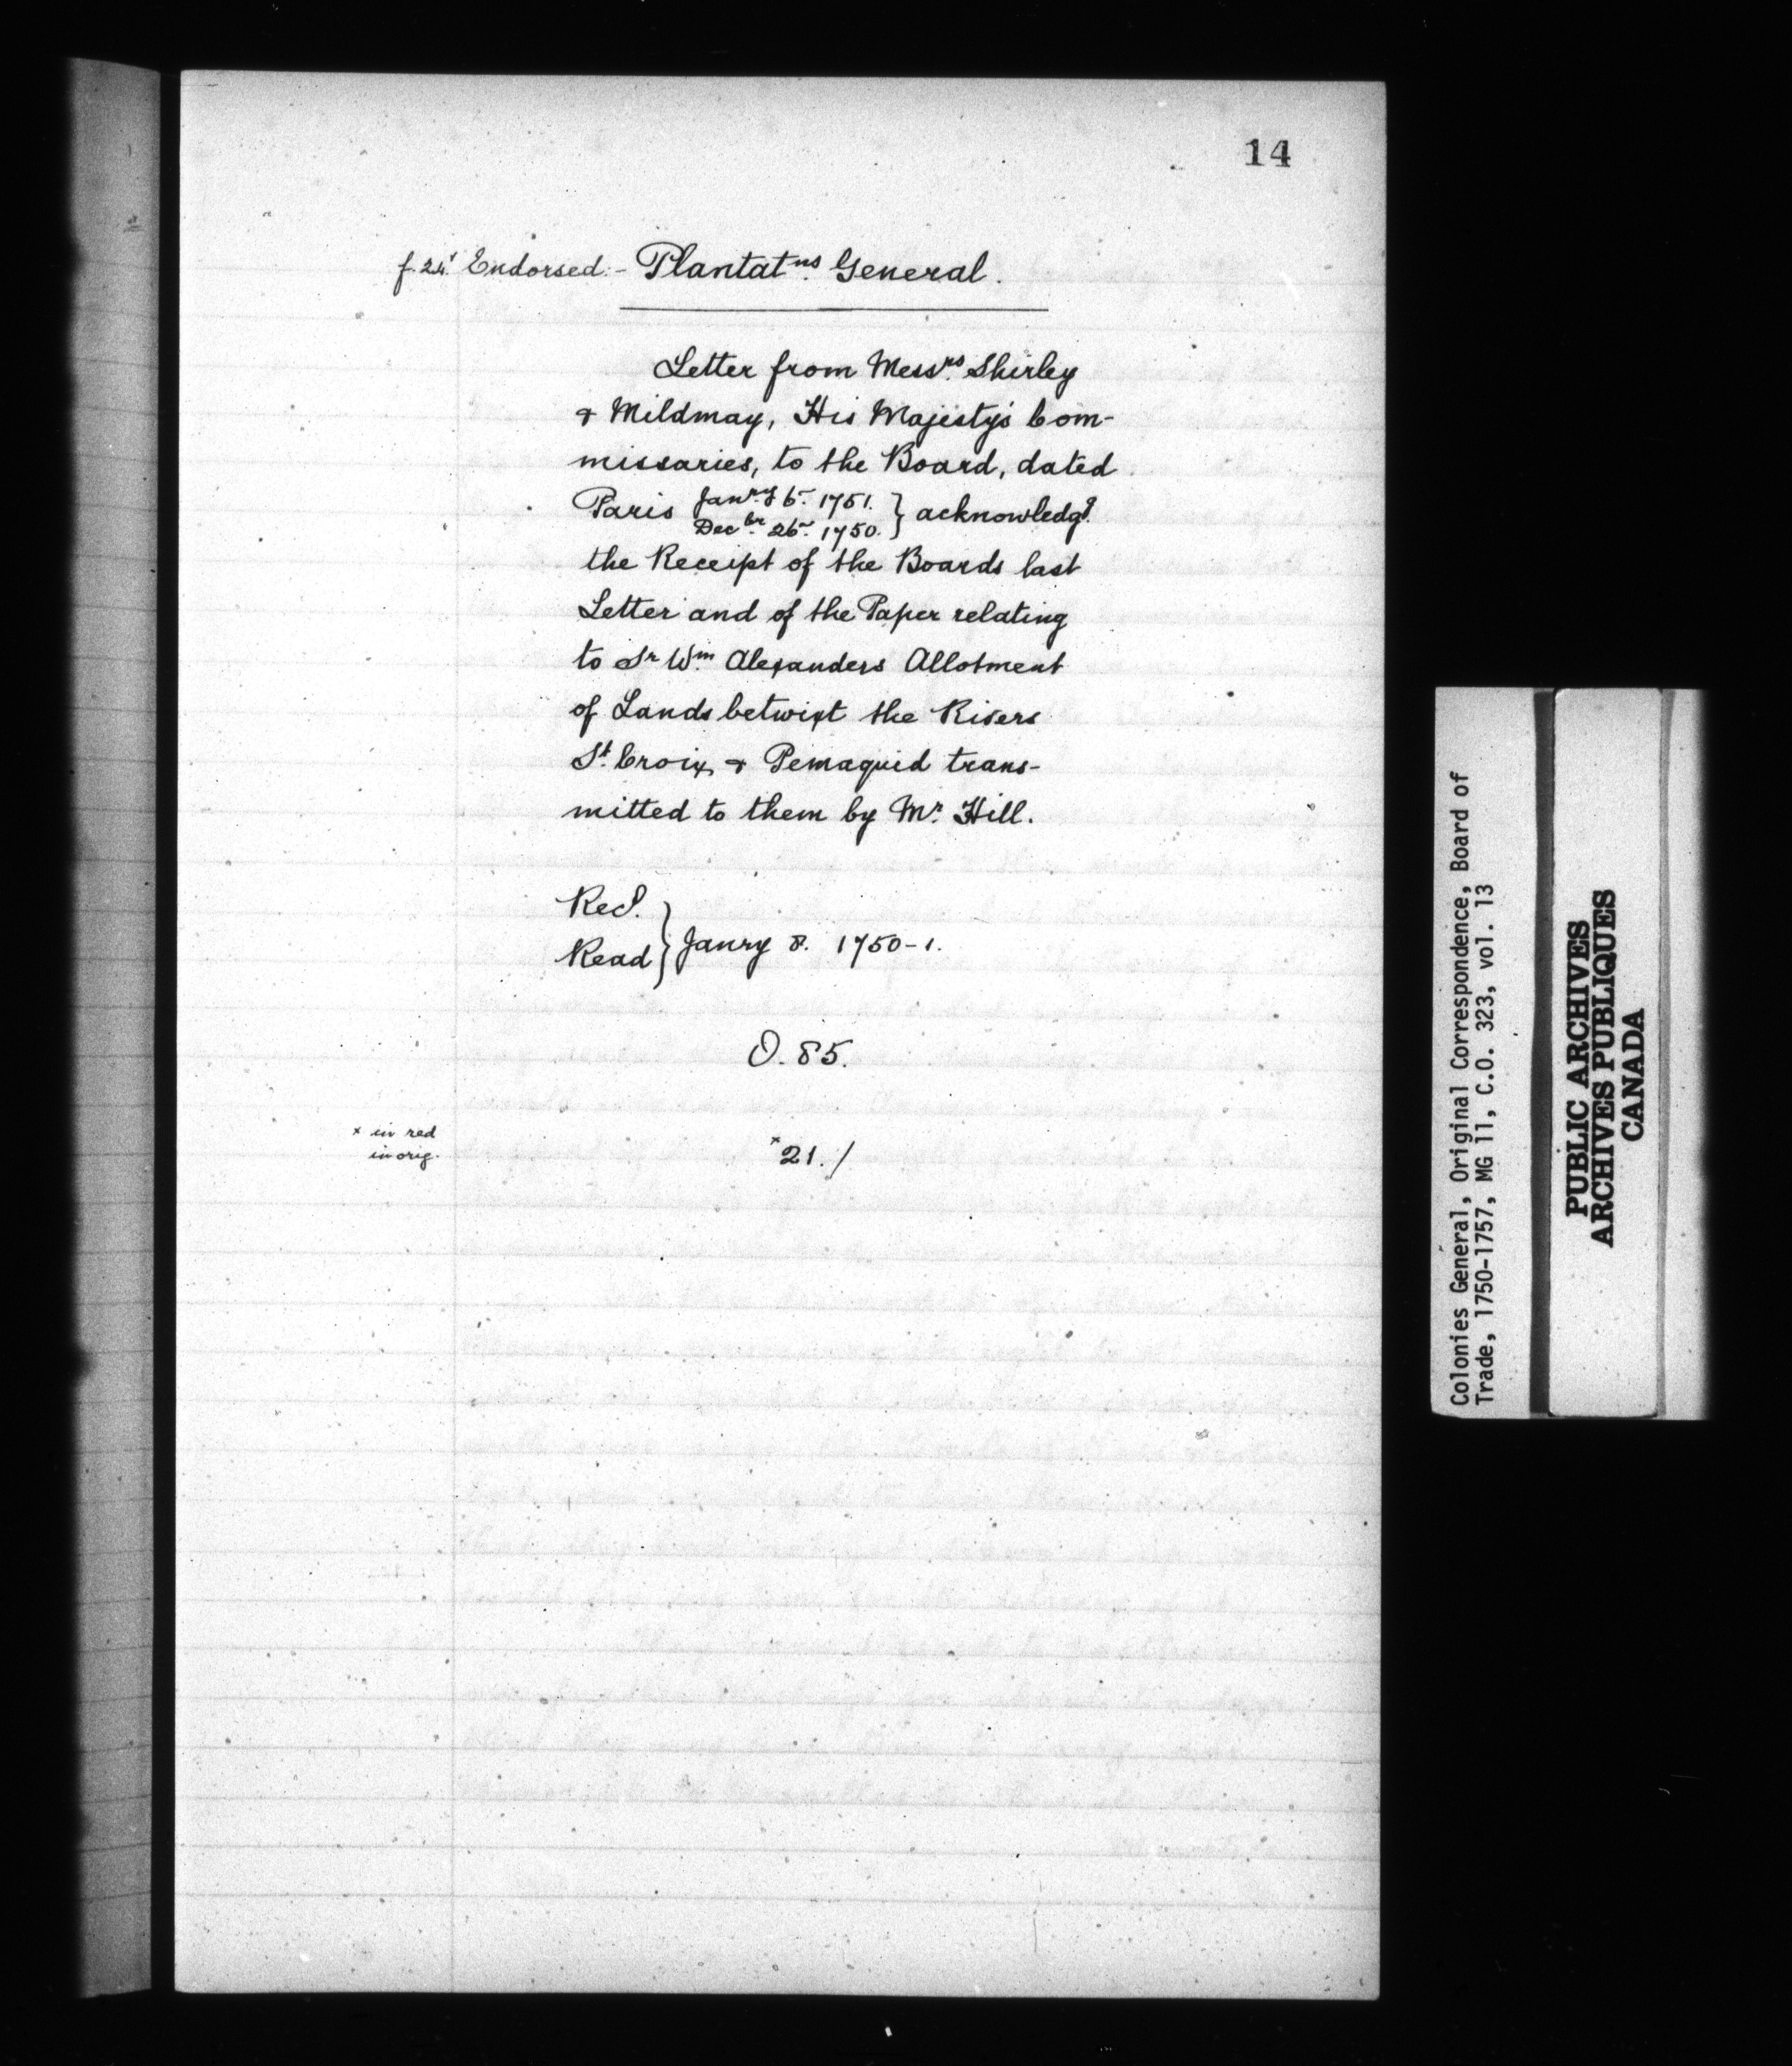 14
f. 24ᵛ Endorsed:- Plantatⁿˢ. General.
Letter from Messʳˢ. Shirley
& Mildmay, His Majesty's Com-
missaries, to the Board, dated
Paris Janʳʸ 5. 1751. } acknowledgᵍ.
Decᵇʳ. 26. 1750. }
the Receipt of the Boards last
Letter and of the Paper relating
to Sʳ Wᵐ. Alexanders Allotment
of Lands betwixt the Rivers
Sᵗ. Croix, & Pemaquid trans-
mitted to them by Mʳ. Hill.
Recᵈ. }
Read } Janry 8. 1750-1.
O. 85.
x in red
in orig.
x 21./
Colonies General, Original Correspondence, Board of
Trade, 1750-1757, MG 11, C.O. 323, vol. 13
PUBLIC ARCHIVES
ARCHIVES PUBLIQUES
CANADA